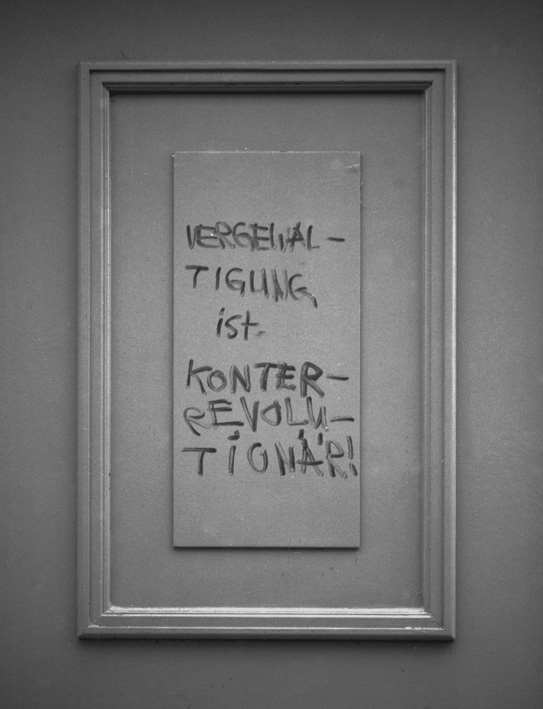 VERGEWAL-
TIGUNG
ist
KONTER-
REVOLU-
TIONÄR!